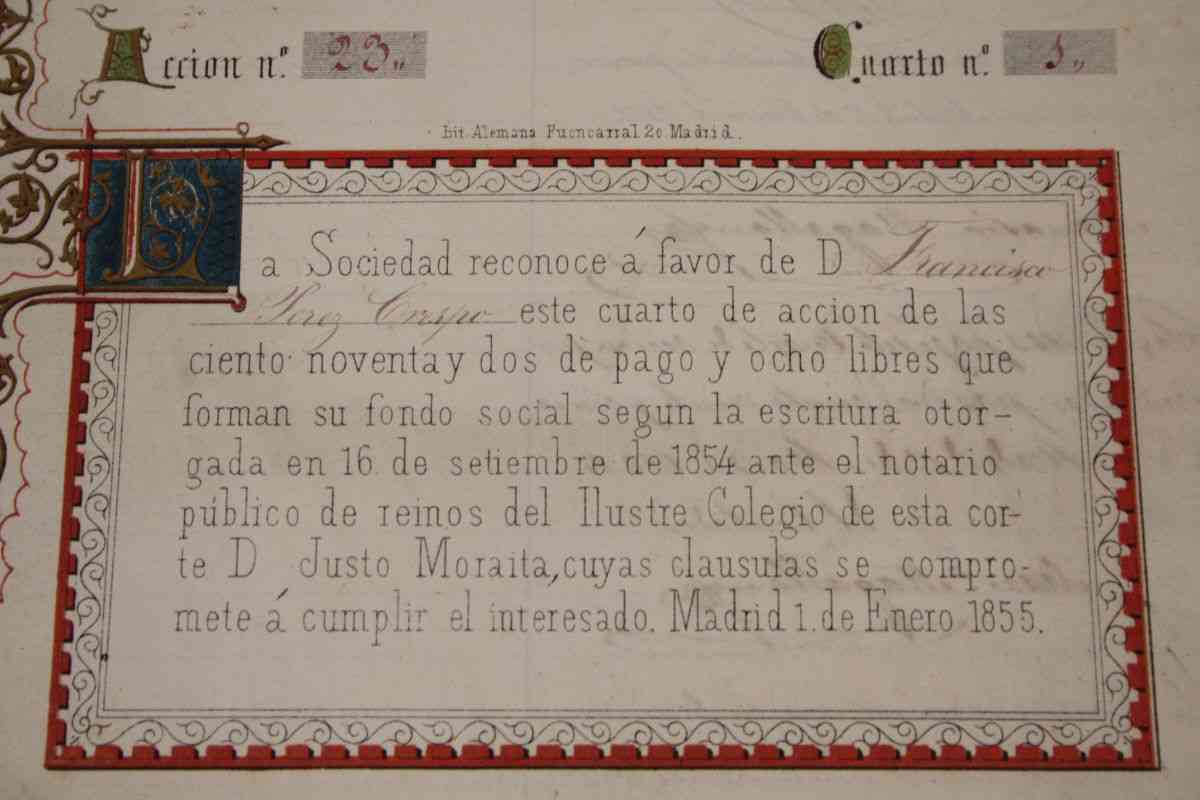 Accion n.º 23,,
Cuarto n.º 1,,
Lit. Alemana Fuencarral 20 Madrid.
La Sociedad reconoce á favor de D Francisco
Perez Crespo este cuarto de accion de las
ciento noventa y dos de pago y ocho libres que
forman su fondo social segun la escritura otor-
gada en 16 de setiembre de 1854 ante el notario
público de reinos del Ilustre Colegio de esta cor-
te D Justo Moraita, cuyas clausulas se compro-
mete á cumplir el interesado. Madrid 1. de Enero 1855.